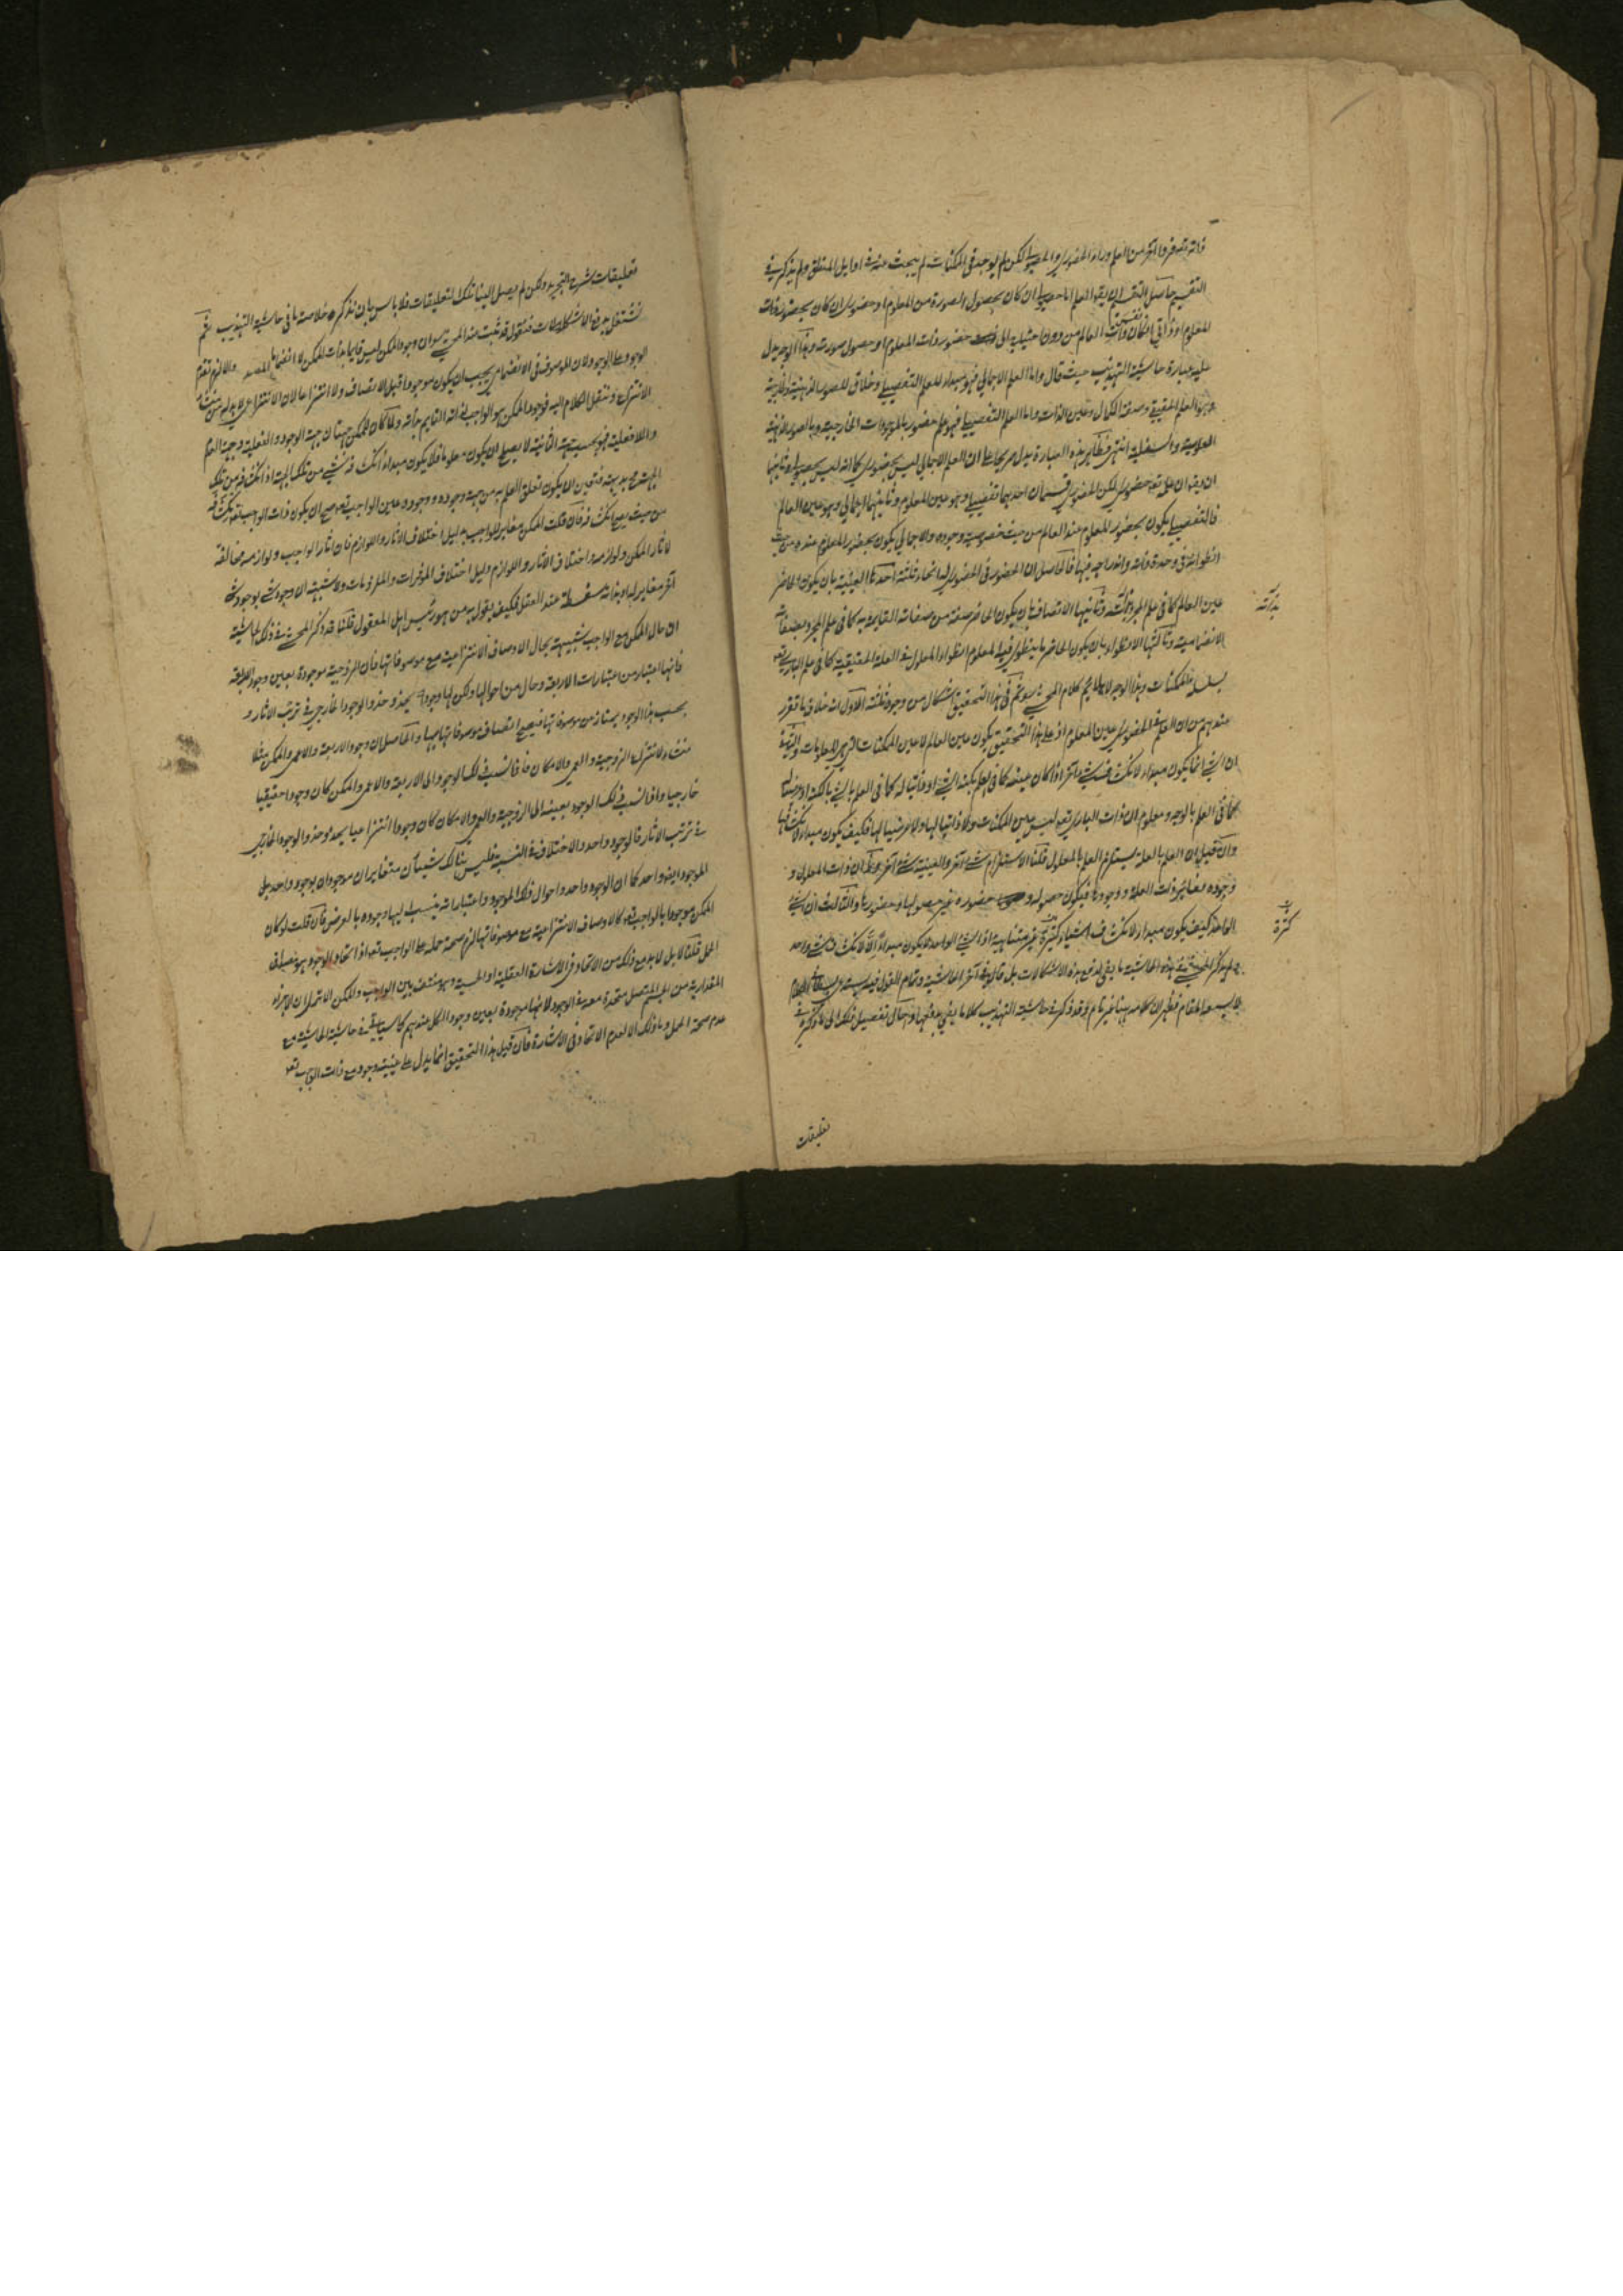 ذاته تعه فردا آخر من العلم وراء الحضوري والحصولي لكن لم يوجد في الممكنات لم يبحث عنه في اوايل المنطق ولم يذكر في
التقسيم حاصل التقسيم ان يقوا العلم اما حصولي ان كان بحصول الصورة من المعلوم او حضوري ان كان بحضور ذات
المعلوم العالم من دون حضور ذات المعلوم او حصول صورته وبهذا الوجه يدل
عليه عبارة حاشية التهذيب حيث قال واما العلم الاجمالي فهو مبداء للعلم التفصيلي وخلاق للصور الذهنية والخارجية
وهو العلم الحقيقي وصفة الكمال وعين الذات واما العلم التفصيلي فهو علم حضوري بالموجودات الخارجية وبالصور الذهنية
العلوية والسفلية انتهى فظاهر هذه العبارة يدل صريحا على ان العلم الاجمالي ليس بحضوري كما انه ليس بحصولي وثانيها
ان يقوا ان علمه تعه حضوري لكن الحضوري قسمان احدهما تفصيلي وهو عين المعلوم وثانيهما اجمالي وهو عين العالم
فالتفصيلي يكون بحضور المعلوم عند العالم من حيث خصوصية وجوده والاجمالي يكون بحضور المعلوم عنده من حيث
انطوائه في وحدة ذاته واندراجه فيها فالحاصل ان الحضور في الحضوري له انحاء ثلثة احدها العينية بان يكون الحاضر
عين العالم كما في علم المجرد بذاته وثانيها الاتصاف بان يكون الحاضر صفة من صفاته القايمة به كما في علم المجرد بصفاته
الانضمامية وثالثها الانطواء بان يكون الحاضر ما ينطوي فيه المعلوم انطواء المعلول في العلة الحقيقية كما في علم الباري تعه
بسلسلة الممكنات وبهذا الوجه كلام المحشي ثم في هذا التحقيق اشكال من وجوه ثلثة الاول انه خلاف ما تقرر
عندهم من ان العلم الحضوري عين المعلوم اذ على هذا التحقيق يكون عين العالم لا عين الممكنات التي هي المعلومات والثاني
ان الشي انما يكون مبداء لانكشاف شي آخر اذا كان عينه كما في العلم بكنه الشي او ذاتيا له كما في العلم بالشي بالكنه او عرضيا
كما في العلم بالوجه ومعلوم ان ذات الباري تعه ليس عين الممكنات ولا ذاتيا لها ولا عرضيا لها فكيف يكون مبداء لانكشافها
وان قيل ان العلم بالعلة يستلزم العلم بالمعلول قلنا الاستلزام شي آخر والعينية شي آخر ان ذات المعلول و
وجوده مغاير لذات العلة ووجودها فيكون حصوله وحضوره غير حصولها وحضورها والثالث ان الشي
الواحد كيف يكون مبداء لانكشاف اشياء كثيرة غير متناهية اذ الشي الواحد لا يكون مبداء الا لانكشاف شي واحد
ولم يذكر المحشي في هذه الحاشية ما يفي لدفع هذه الاشكالات بل قال في آخر الحاشية وتمام القول فيه
لا يسعه المقام فظهر ان كلامه ههنا غير تام وقد ذكر في حاشية التهذيب كلاما يفي بدفعها واحال تفصيل ذلك الى ما ذكره في
بذاته
كثرة
تعليقات
تعليقات شرح التجريد ولكن لم يصل الينا تلك التعليقات فلا باس بان نذكر خلاصة ما في حاشية التهذيب ثم
نشتغل بدفع الاشكالات فنقول قد ثبت عند المحشي ان وجود الممكن ليس قايما بذات الممكن لا انضماما والا لزم تقدم
الوجود على الوجود لان الموصوف في الانضمام يجب ان يكون موجودا قبل الاتصاف ولا انتزاعا لان الانتزاعي لا بد له من منشاء
الانتزاع وننقل الكلام اليه فوجود الممكن هو الواجب لذاته القايم بذاته ولما كان للممكن جهتان جهة الوجود والفعلية وجهة العدم
واللا فعلية فهو بحسب جهته الثانية لا يصلح ان يكون معلوما فلا يكون مبداء انكشافه شي من تلك الجهة اذ انكشافه من تلك
الجهة مح بديهة فتعين ان يكون تعلق العلم به من جهة وجوده ووجوده عين الواجب تعه فصح ان يكون ذات الواجب
من حيث يصح انكشافه فان قلت الممكن مغاير للواجب بدليل اختلاف الاثار واللوازم فان اثار الواجب ولوازمه مخالفة
لاثار الممكن ولوازمه واختلاف الاثار واللوازم دليل اختلاف المؤثرات والملزومات وشبهة الا وجود شي بوجود شي
آخر مغاير له وهذا سفسطة عند العقل فكيف يقول به من هو رئيس اهل المعقول قلنا قد ذكر المحشي في ذلك الحاشية
ان حال الممكن مع الواجب شبيهة بحال الاوصاف الانتزاعية مع موصوفاتها فان الزوجية موجودة بعين وجود الاربعة
فانها اعتبار من اعتبارات الاربعة وحال من احوالها ولكن لها وجود يحذو حذو الوجود الخارجي في ترتب الاثار و
بحسب هذا الوجود يمتاز من موصوفاتها فيصح اتصاف موصوفاتها بها والحاصل ان وجود الاربعة والاعمى والممكن مثلا
منشاء لانتزاع الزوجية والعمى والامكان فاذا نسب ذلك الوجود الى الاربعة والاعمى والممكن كان وجودا حقيقيا
خارجيا واذا نسب ذلك الوجود بعينه الى الزوجية والعمى والامكان كان وجودا انتزاعيا يحذو حذو الوجود الخارجي
في ترتب الاثار فالوجود واحد والاختلاف في النسبة فليس هنالك شيئان متغايران موجودان بوجود واحد بل
الموجود ايضا واحد كما ان الوجود واحد واحوال ذلك الموجود واعتباراته ينسب اليها وجوده بالعرض فان قلت لو كان
الممكن موجودا بالواجب تعه كالاوصاف الانتزاعية مع موصوفاتها لزم صحة حمله على الواجب تعه اذ اتحاد الوجود هو مصداق
الحمل قلنا لا بل لا بد مع ذلك من الاتحاد في الاشارة العقلية او الحسية وهو منتف بين الواجب والممكن الا ترى ان الاجزاء
المقدارية من الجسم المتصل متحدة معه في الوجود لانها موجودة بعين وجود الكل عندهم كما سياتي في حاشية الحاشية مع
عدم صحة الحمل وما ذلك الا لعدم الاتحاد في الاشارة فان قيل هذا التحقيق انما يدل على عينية وجوده مع ذات الواجب تعه